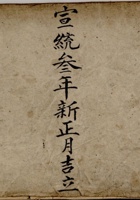 宣統叁年新正月吉立